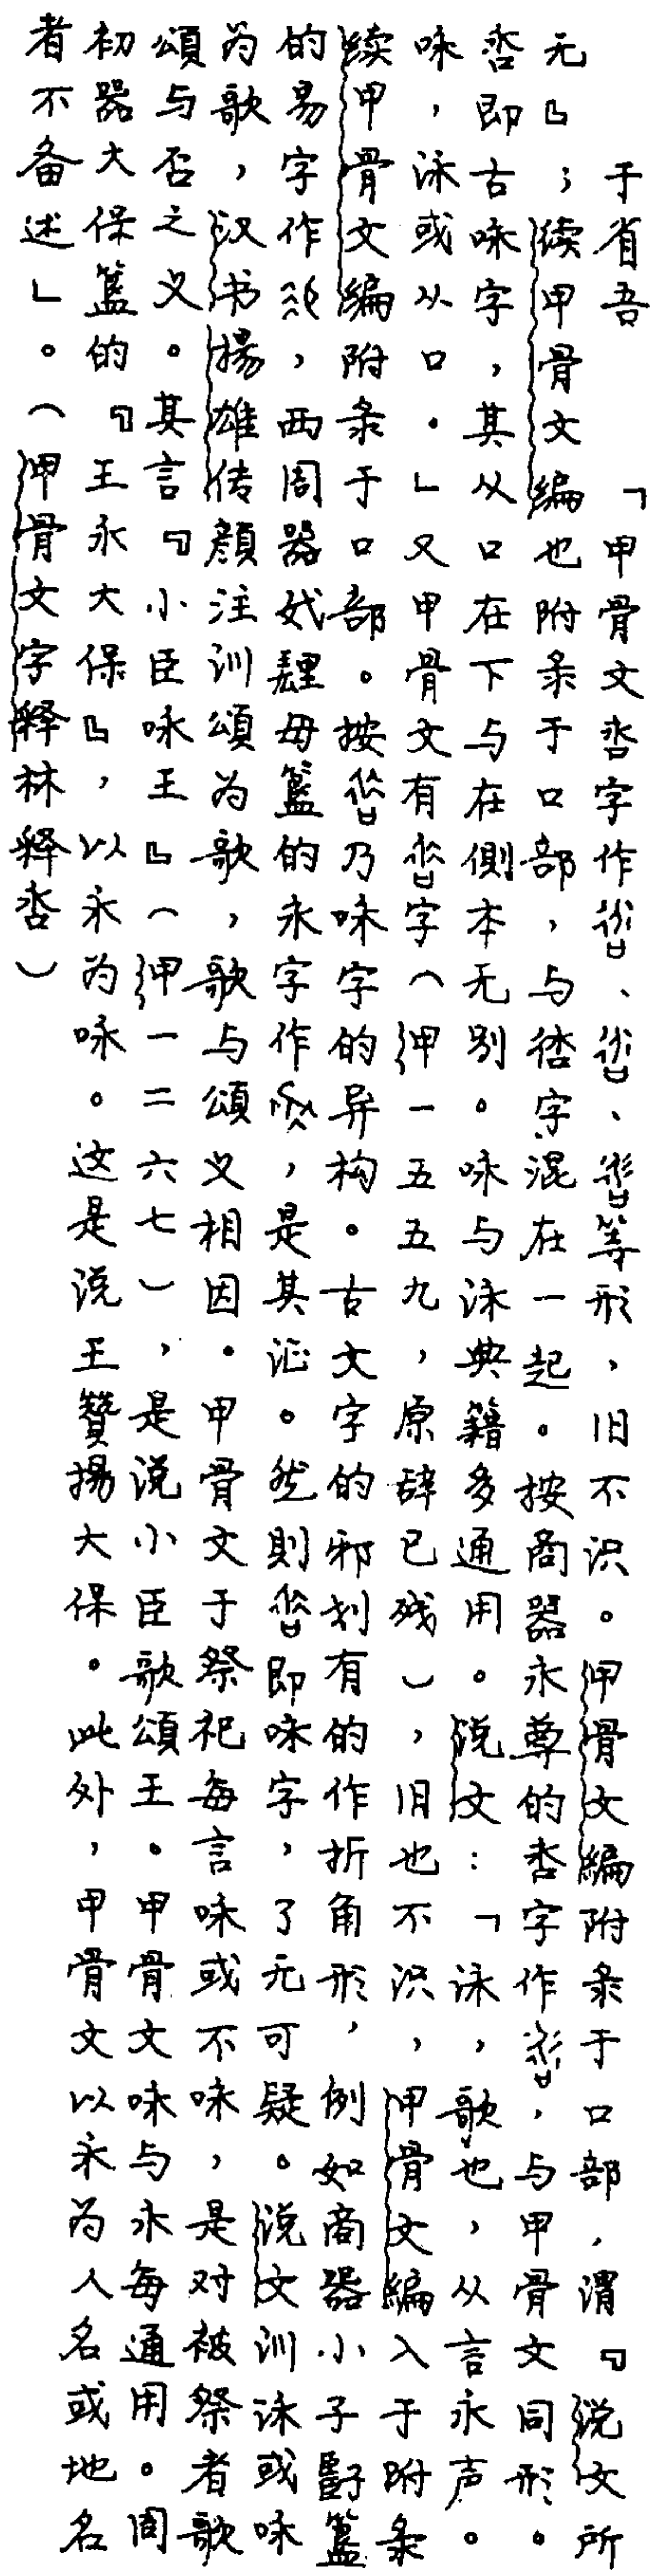 于省吾　「甲骨文㕽字作、、等形，旧不识。甲骨文编附录于口部，谓『说文所
无』；续甲骨文编也附录于口部，与字混在一起。按商器永尊的㕽字作，与甲骨文同形。
㕽即古咏字，其从口在下与在侧本无别。咏与泳典籍多通用。说文：「泳，歌也，从言永声。
咏，泳或从口。」又甲骨文有字（甲一五五九，原辞已残），旧也不识，甲骨文编入于附录
续甲骨文编附录于口部。按乃咏字的异构。古文字的邪划有的作折角形，例如商器小子簋
的易字作，西周器毋簋的永字作，是其证。然则即咏字，了无可疑。说文训泳或咏
为歌，汉书扬雄传颜注训颂为歌，歌与颂义相因。甲骨文于祭祀每言咏或不咏，是对被祭者歌
颂与否之义。其言『小臣咏王』（甲一二六七），是说小臣歌颂王。甲骨文咏与永每通用。周
初器大保簋的『王永大保』，以永为咏。这是说王赞扬大保。此外，甲骨文以永为人名或地名
者不备述」。（甲骨文字释林释㕽）